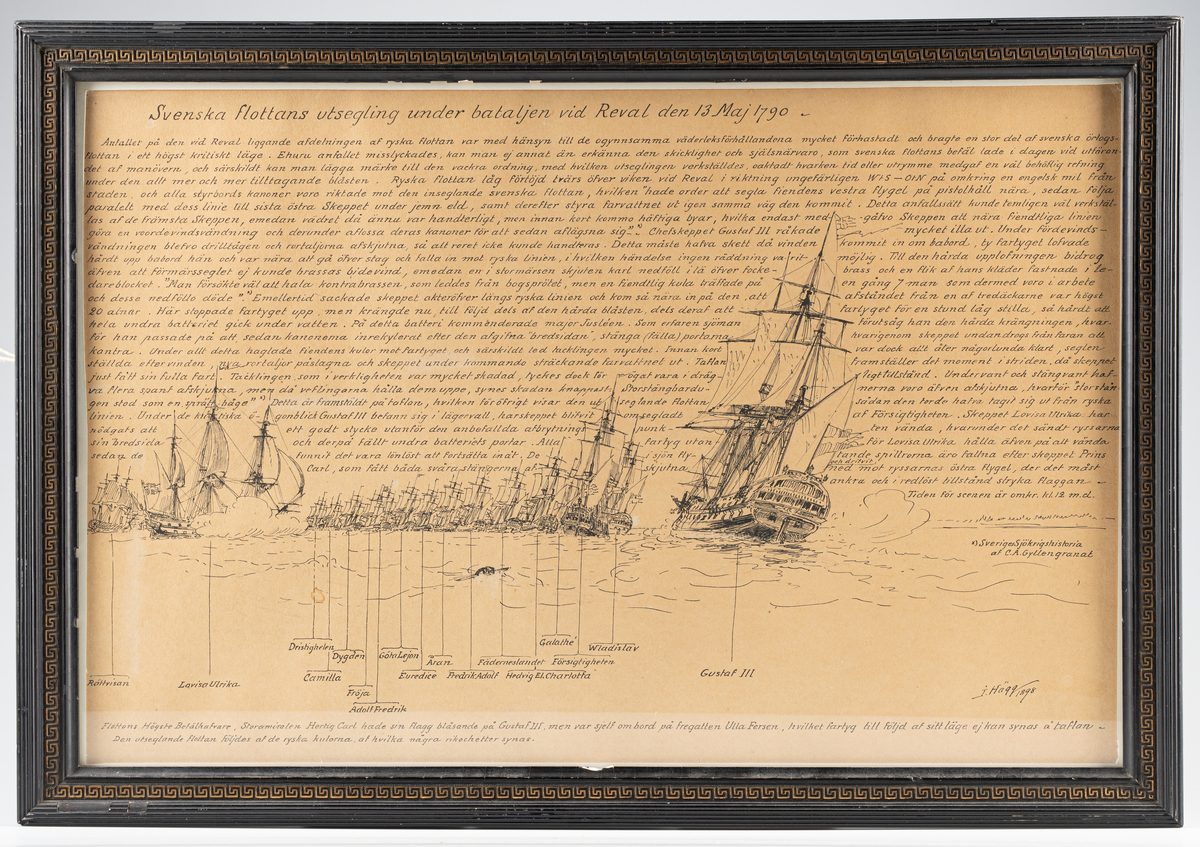 Svenska flottans utsegling under bataljen vid Reval den 13 Maj 1790 -
Anfallet på den vid Reval liggande afdelningen af ryska flottan var med hänsyn till de ogynnsamma väderleksförhållandena mycket förhastadt och bragte en stor del af svenska örlogs-
flottan i ett högst kritiskt läge. Ehuru anfallet misslyckades, kan man ej annat än erkänna den skicklighet och själsnärvaro, som svenska flottans befäl lade i dagen vid utföran-
det af manövern, och särskildt kan man lägga märke till den vackra ordning, med hvilken utseglingen verkställdes, oaktadt hvarken tid eller utrymme medgaf en väl behöflig refning
under den allt mer och mer tilltagande blåsten. Ryska flottan låg förtöjd tvärs öfver viken vid Reval i riktning ungefärligen W½S-O½N på omkring en engelsk mil från
staden, och alla styrbords kanoner voro riktade mot den inseglande svenska flottan, hvilken "hade order att segla fiendens vestra flygel på pistolhåll nära, sedan följa
paralelt med dess linie till sista östra Skeppet under jemn eld, samt derefter styra farvattnet ut igen samma väg den kommit. Detta anfallssätt kunde temligen väl verkstäl-
las af de främsta Skeppen, emedan vädret då ännu var handterligt, men innan kort kommo häftiga byar, hvilka endast med- gåfvo Skeppen att nära fiendtliga linien
göra en voordevindsvändning och derunder aflossa deras kanoner för att sedan aflägsna sig". *) Chefskeppet Gustaf III råkade mycket illa ut. Under fördevinds-
vändningen blefvo drilltågen och rortaljorna afskjutna, så att roret icke kunde handteras. Detta måste hafva skett då vinden kommit in om babord, ty fartyget lofvade
hårdt upp babord hän och var nära att gå öfver stag och falla in mot ryska linien, i hvilken händelse ingen räddning varit möjlig. Till den hårda uppfofningen bidrog
äfven att förmärsseglet ej kunde brassas bidevind, emedan en i stormärsen skjuten karl nedföll i lä öfver focke- brass och en flik af hans kläder fastnade i le-
dareblocket. "Man försökte väl att hala kontrabrassen, som leddes från bogsprötet, men en fiendtlig kula träffade på en gång 7 man som dermed voro i arbete
och desse nedföllo döde". *) Emellertid sackade skeppet akteröfver längs ryska linien och kom så nära in på den, att afståndet från en af tredäckarne var högst
20 alnar. Här stoppade fartyget upp, men krängde nu, till följd dels af den hårda blåsten, dels deraf att fartyget för en stund låg stilla, så hårdt att
hela undra batteriet gick under vatten. På detta batteri kommenderade major Jusléen. Som erfaren sjöman förutsåg han den hårda krängningen, hvar-
för han passade på att sedan kanonerna inrekylerat efter den afgifna "bredsidan", stänga (fälla) portarna, hvarigenom skeppet undandrogs hafvaran att
kantra. Under allt detta haglade fiendens kulor mot fartyget och särskildt led tacklingen mycket. Innan kort var dock allt åter någorlunda klart, seglen
ställda eftervinden, nya rortaljor påslagna och skeppet under kommando sträckande farvattnet ut. Taflan framställer det moment i striden, då skeppet
just fått sin fulla fart. Tacklingen som i verkligheten var mycket skadad, tyckes dock för ögat vara i dräg- ligt tillstånd. Undervant och stängvant haf-
va flera spant afskjutna, men då veflingarna hålla dem uppe, synes skadan knappast. Storstängbardu- nerna voro äfven afskjutna, hvarför "storstän-
gen stod som en spänd båge". *) Detta är framstäldt på taflan, hvilken för öfrigt visar den ut- seglande flottan sådan den torde hafva tagit sig ut från ryska
linien. Under de kritiska ö- gonblick Gustaf III befann sig i lägervall, har skeppet blifvit omsegladt af Försigtigheten. Skeppet Lovisa Ulrika har
nödgats att ett godt stycke utanför den anbefallda afbrytnings- punk- ten vända, hvarunder det sändt ryssarna
sin bredsida och derpå fällt undra batteriets portar. Alla fartyg utan för Lovisa Ulrika hålla äfven på att vända
sedan de funnit det vara lönlöst att fortsätta inåt. De i sjön fly- tande spillrorna äro fallna efter skeppet Prins
Carl, som fått båda svåra stängerna af- skjutna och drifvit ned mot ryssarnas östra flygel, der det måst
ankra och i redlöst tillstånd stryka flaggan -
Tiden för scenen är omkr. kl. 12 m.d.
*) Sveriges Sjökrigshistoria
af C.A. Gyllengranat
Galathé
Dristigheten
Wladislav
Dygden
Göta Lejon
Äran
Fäderneslandet
Försigtigheten
Rättvisan
Lovisa Ulrika
Camilla
Euredice
Fredrik Adolf
Hedvig El. Charlotta
Gustaf III
Fröja
Adolf Fredrik
J. Hägg/1898
Flottans Högste Befälhafvare, Storamiralen Hertig Carl hade sin flagg blåsande på Gustaf III, men var sjelf ombord på fregatten Ulla Fersen, hvilket fartyg till följd af sitt läge ej kan synas å taflan -
Den utseglande flottan följdes af de ryska kulorna, af hvilka några rikochetter synas.